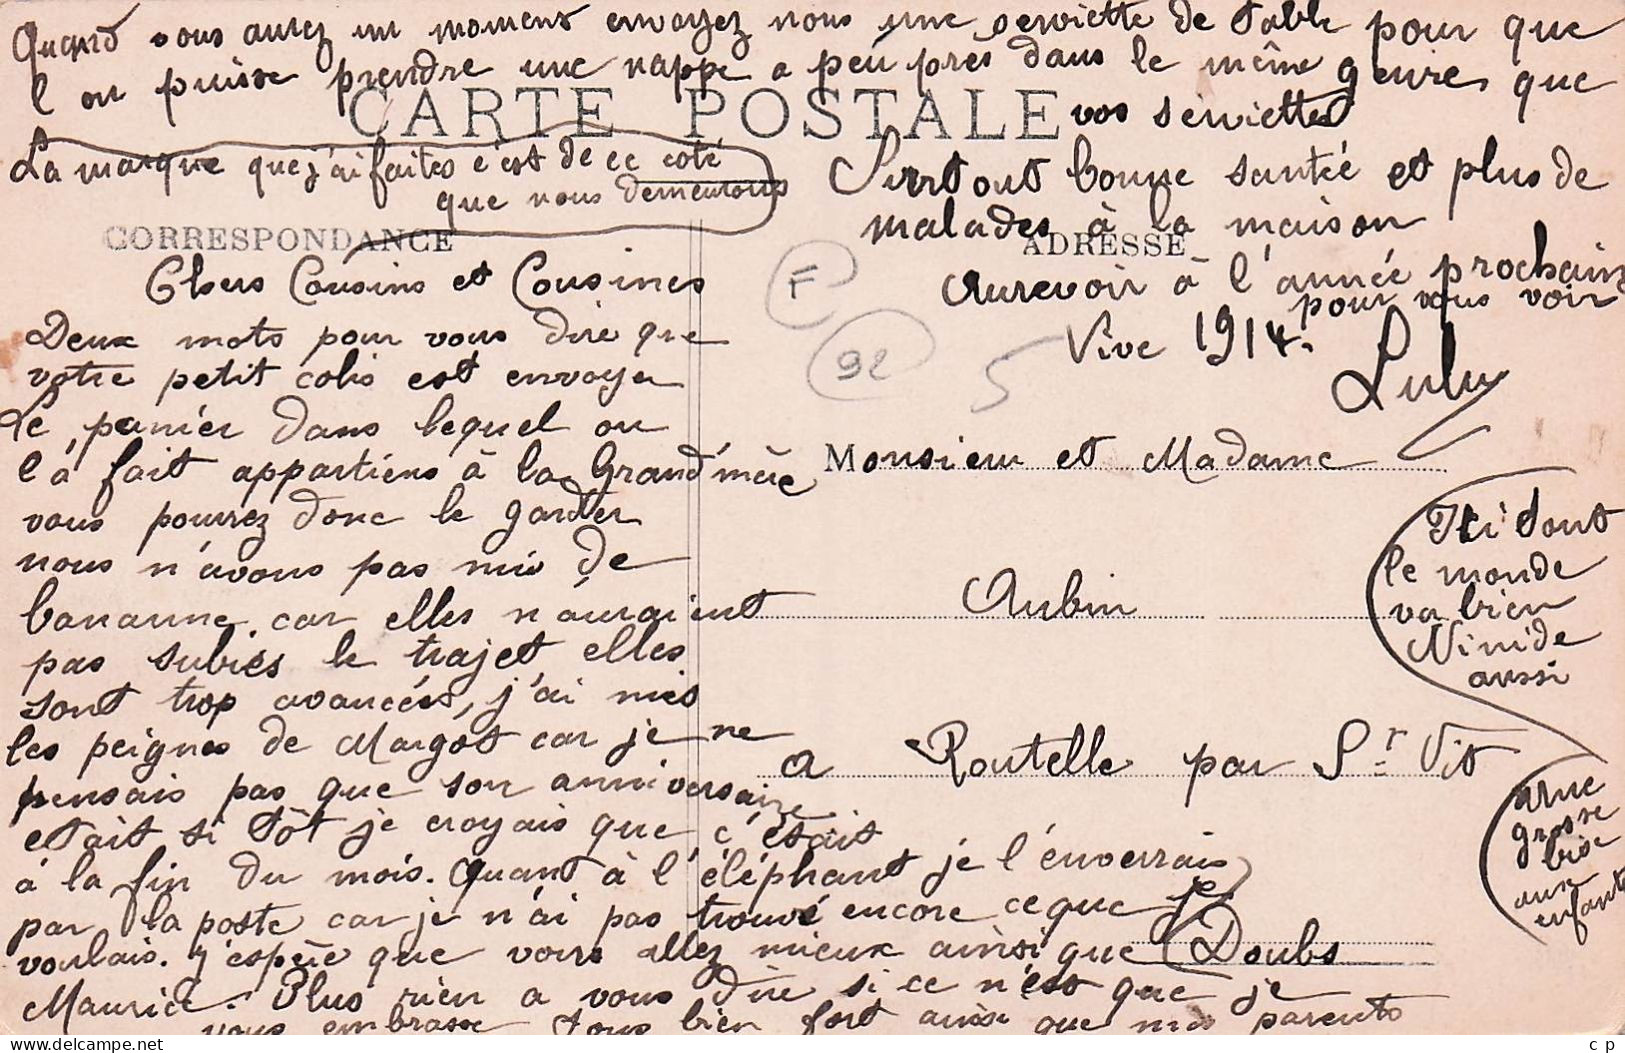 Quand vous aurez un moment envoyez nous une serviette de table pour que
l on puisse prendre une nappe a peu près dans le même genre que
vos serviettes
CARTE POSTALE
La marque que j'ai faites c'est de ce coté
que nous demeurons
Surtout bonne santée et plus de
malades à la maison
Aurevoir à l'année prochaine
pour vous voir
Vive 1914.
Lulu
CORRESPONDANCE
ADRESSE
Chers Cousins et Cousines
Deux mots pour vous dire que
votre petit colis est envoyer
le panier dans lequel on
l'a fait appartiens à la Grand'mère
vous pourrez donc le garder
nous n'avons pas mis de
bananne car elles n'auraient
pas subies le trajet elles
sont trop avancées, j'ai mis
les peignes de Margot car je ne
pensais pas que son anniversaire
etait si tôt je croyais que c'était
à la fin du mois. Quant à l'éléphant je l'enverrais
par la poste car je n'ai pas trouvé encore ce que je
voulais. J'espère que vous allez mieux ainsi que
Maurice. Plus rien a vous dire si ce n'est que je
vous embrasse tous bien fort ainsi que mes parents
F
92
5
Monsieur et Madame
Aubin
a Routelle par St Vit
Doubs
Ici tout
le monde
va bien
Ninide
aussi
Une
grosse
bise
aux
enfants
delcampe.net
c p